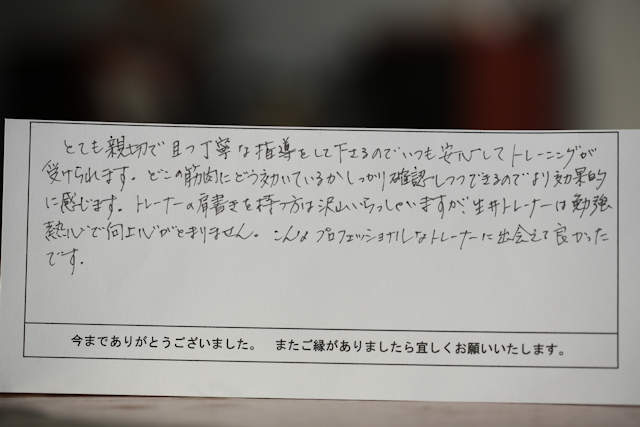 とても親切で且つ丁寧な指導をして下さるのでいつも安心してトレーニングが
受けられます。どこの筋肉にどう効いているかしっかり確認しつつできるのでより効果的
に感じます。トレーナーの肩書きを持つ方は沢山いらっしゃいますが、生井トレーナーは勉強
熱心で向上心がとまりません。こんなプロフェッショナルなトレーナーに出会えて良かった
です。
今までありがとうございました。 またご縁がありましたら宜しくお願いいたします。